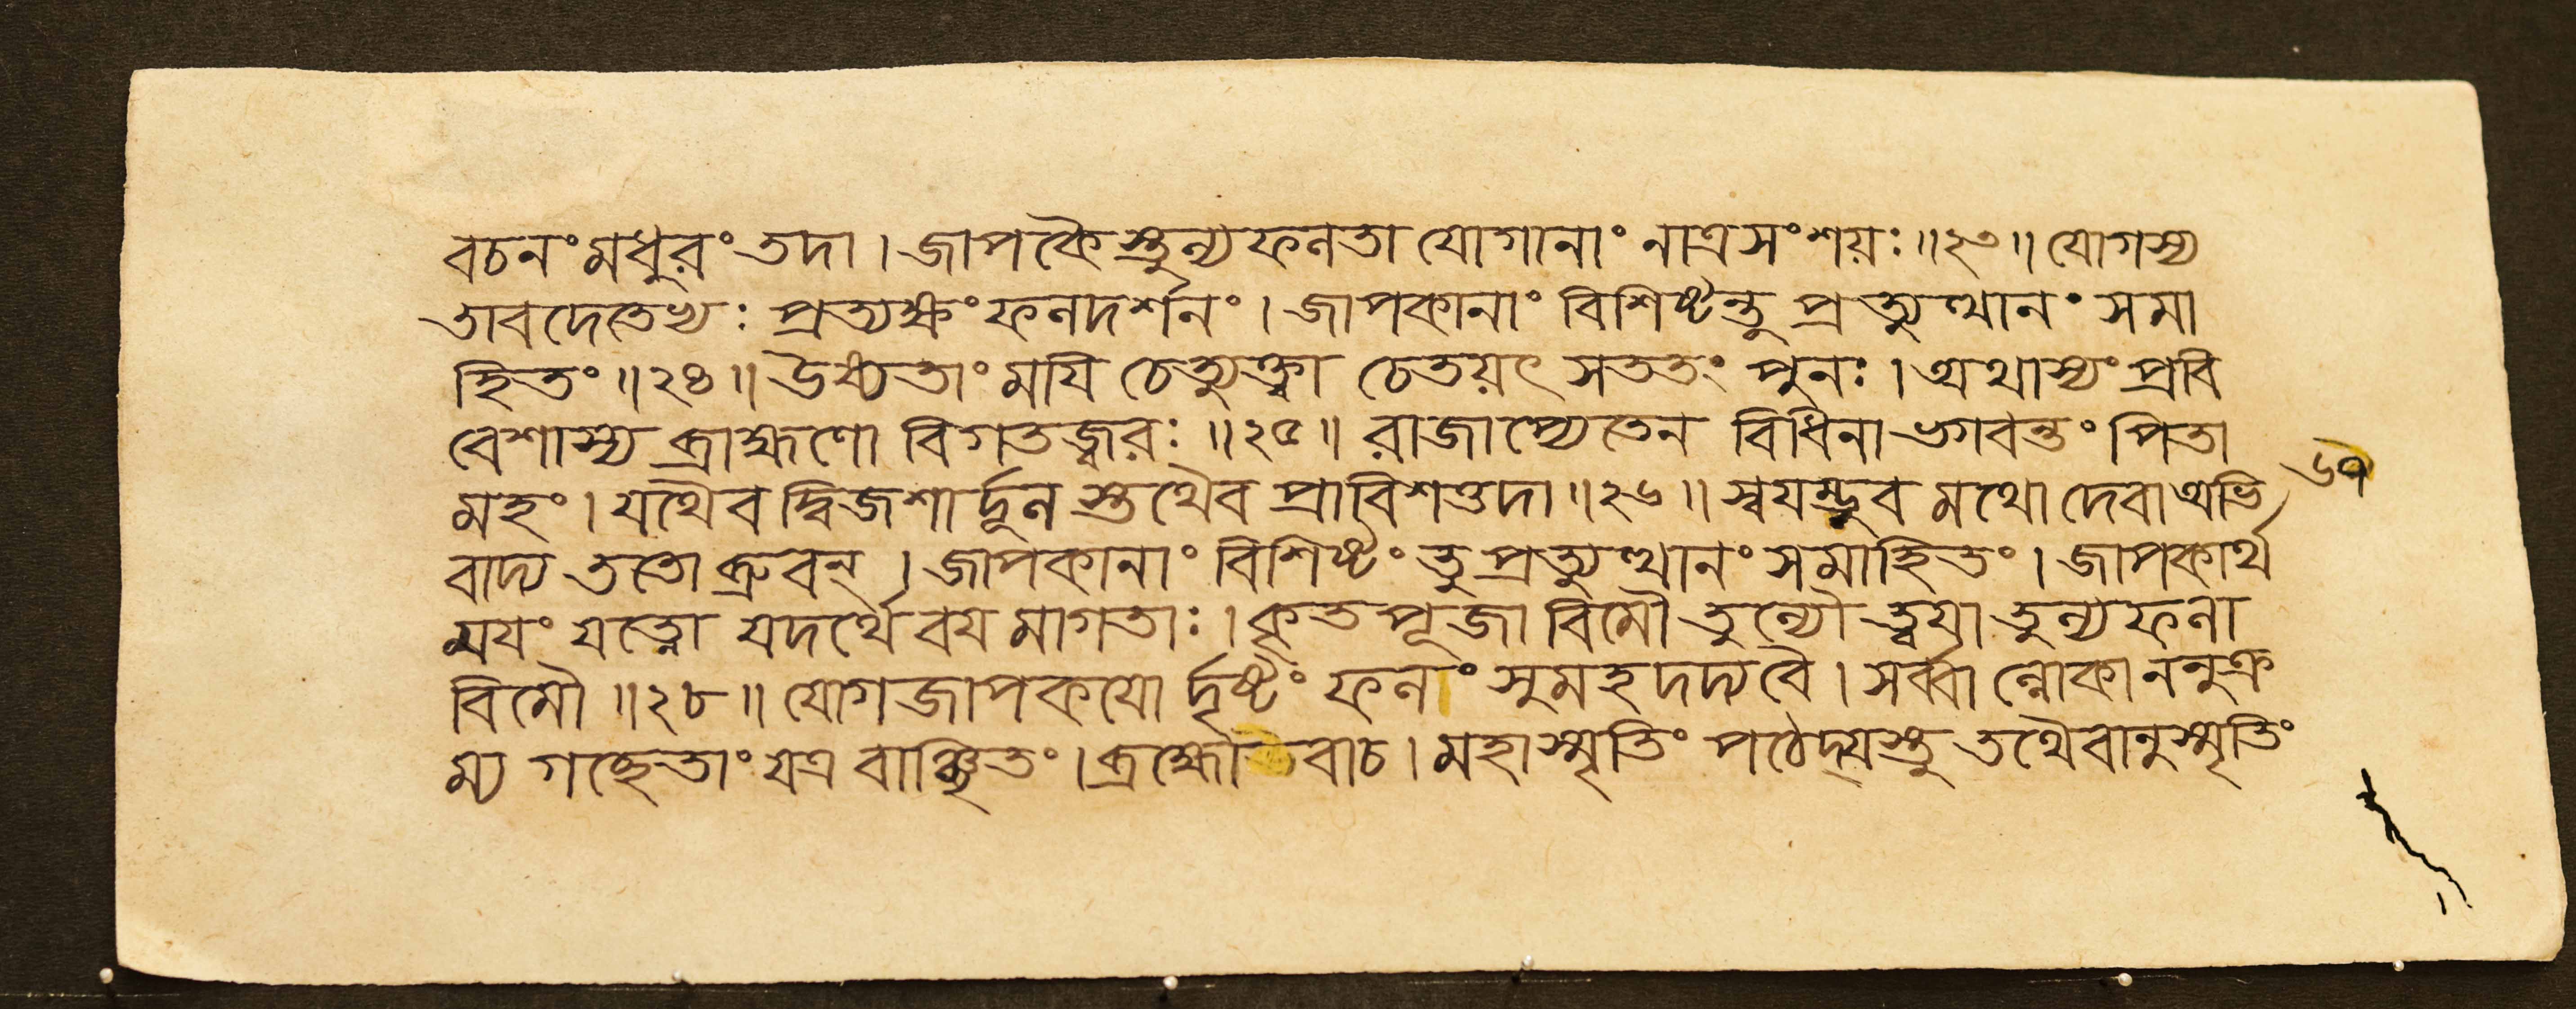 বচনং মধুরং তদা । জাপকৈস্তুল্যফলতা যোগানাং নাত্র সংশয়ঃ ॥২৩॥ যোগস্য
তাবদেতেভ্যঃ প্রত্যক্ষং ফলদর্শনং । জাপকানাং বিশিষ্টন্তু প্রত্যুত্থানং সমা
হিতং ॥২৪॥ উষ্যতাং ময়ি চেত্যুক্ত্বা চেতয়ৎ সততং পুনঃ । অথাস্যং প্রবি
বেশাস্য ব্রাহ্মণো বিগতজ্বরঃ ॥২৫॥ রাজাপ্যেতেন বিধিনা ভগবন্তং পিতা
মহং । যথৈব দ্বিজশার্দূল স্তথৈব প্রাবিশত্তদা ॥২৬॥ স্বয়ম্ভুব মথো দেবা অভি
৬৭
বাদ্য ততো ব্রুবন্ । জাপকানাং বিশিষ্টং তু প্রত্যুত্থানং সমাহিতং । জাপকার্থ
ময়ং যত্নো যদর্থে বয়মাগতাঃ । কৃতপূজা বিমৌ তুল্যৌ ত্বয়া তুল্যফলা
বিমৌ ॥২৮॥ যোগজাপকয়ো র্দৃষ্টং ফলং সুমহদদ্য বৈ । সর্ব্বাল্লোকাননুক্র
ম্য গচ্ছেতাং যত্র বাঞ্ছিতং । ব্রহ্মোউবাচ । মহাস্মৃতিং পঠেদ্যস্তু তথৈবানুস্মৃতিং